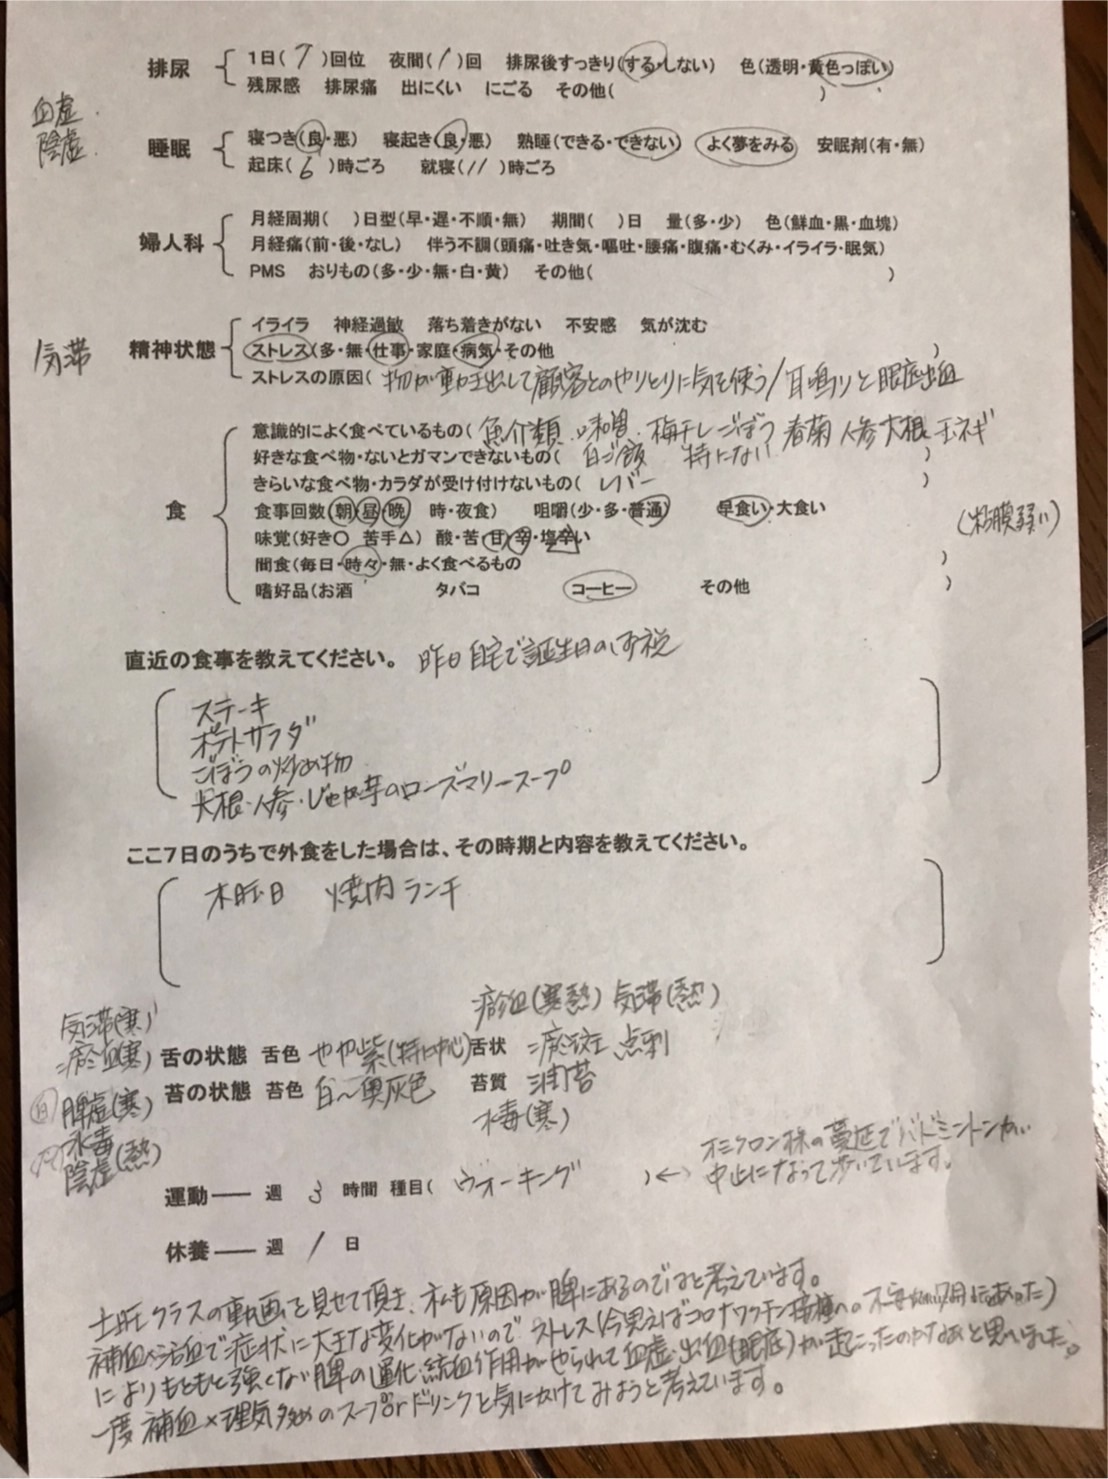 排尿 1日( 7 )回位 夜間( 1 )回 排尿後すっきり(する・しない) 色(透明・黄色っぽい)
残尿感 排尿痛 出にくい にごる その他( )
血虚
陰虚
睡眠 寝つき(良・悪) 寝起き(良・悪) 熟睡(できる・できない) よく夢をみる 安眠剤(有・無)
起床( 6 )時ごろ 就寝( 11 )時ごろ
婦人科 月経周期( )日型(早・遅・不順・無) 期間( )日 量(多・少) 色(鮮血・黒・血塊)
月経痛(前・後・なし) 伴う不調(頭痛・吐き気・嘔吐・腰痛・腹痛・むくみ・イライラ・眠気)
PMS おりもの(多・少・無・白・黄) その他( )
イライラ 神経過敏 落ち着きがない 不安感 気が沈む
気滞 精神状態 ストレス(多・無・仕事・家庭・病気・その他 )
ストレスの原因( 物が動き出して顧客とのやりとりに気を使う/耳鳴りと眼底出血
意識的によく食べているもの( 魚介類 味噌 梅干し ごぼう 春菊 人参 大根 玉ネギ
好きな食べ物・ないとガマンできないもの( 白ご飯 特にない )
きらいな食べ物・カラダが受け付けないもの( レバー )
食 食事回数(朝・昼・晩 時・夜食) 咀嚼(少・多・普通) 早食い・大食い
(粘膜弱い)
味覚(好き○ 苦手△) 酸・苦・甘・辛・塩辛い
間食(毎日・時々・無・よく食べるもの )
嗜好品(お酒 タバコ コーヒー その他 )
直近の食事を教えてください。 昨日自宅で誕生日のお祝
ステーキ
ポテトサラダ
ごぼうの炒め物
大根・人参・じゃが芋のローズマリースープ
ここ7日のうちで外食をした場合は、その時期と内容を教えてください。
木曜日 焼肉ランチ
瘀血(寒熱) 気滞(熱)
気滞(寒)
瘀血(寒) 舌の状態 舌色 やや紫(特に中心) 舌状 瘀斑 点刺
(白)脾虚(寒) 苔の状態 苔色 白〜奥灰色 苔質 滑苔
水毒 水毒(寒)
陰虚(熱)
オミクロン株の蔓延でバドミントンが
運動── 週 3 時間 種目( ウオーキング )← 中止になって歩いています。
休養── 週 1 日
土曜クラスの動画を見せて頂き、私も原因が脾にあるのではと考えています。
補血×活血で症状に大きな変化がないので ストレス(今思えばコロナワクチン接種への不安が7月にあった)
によりもともと強くない脾の運化・統血作用がやられて血虚・出血(眼底)が起こったのかなぁと思いました。
一度 補血×理気多めのスープorドリンクと気にかけてみようと考えています。